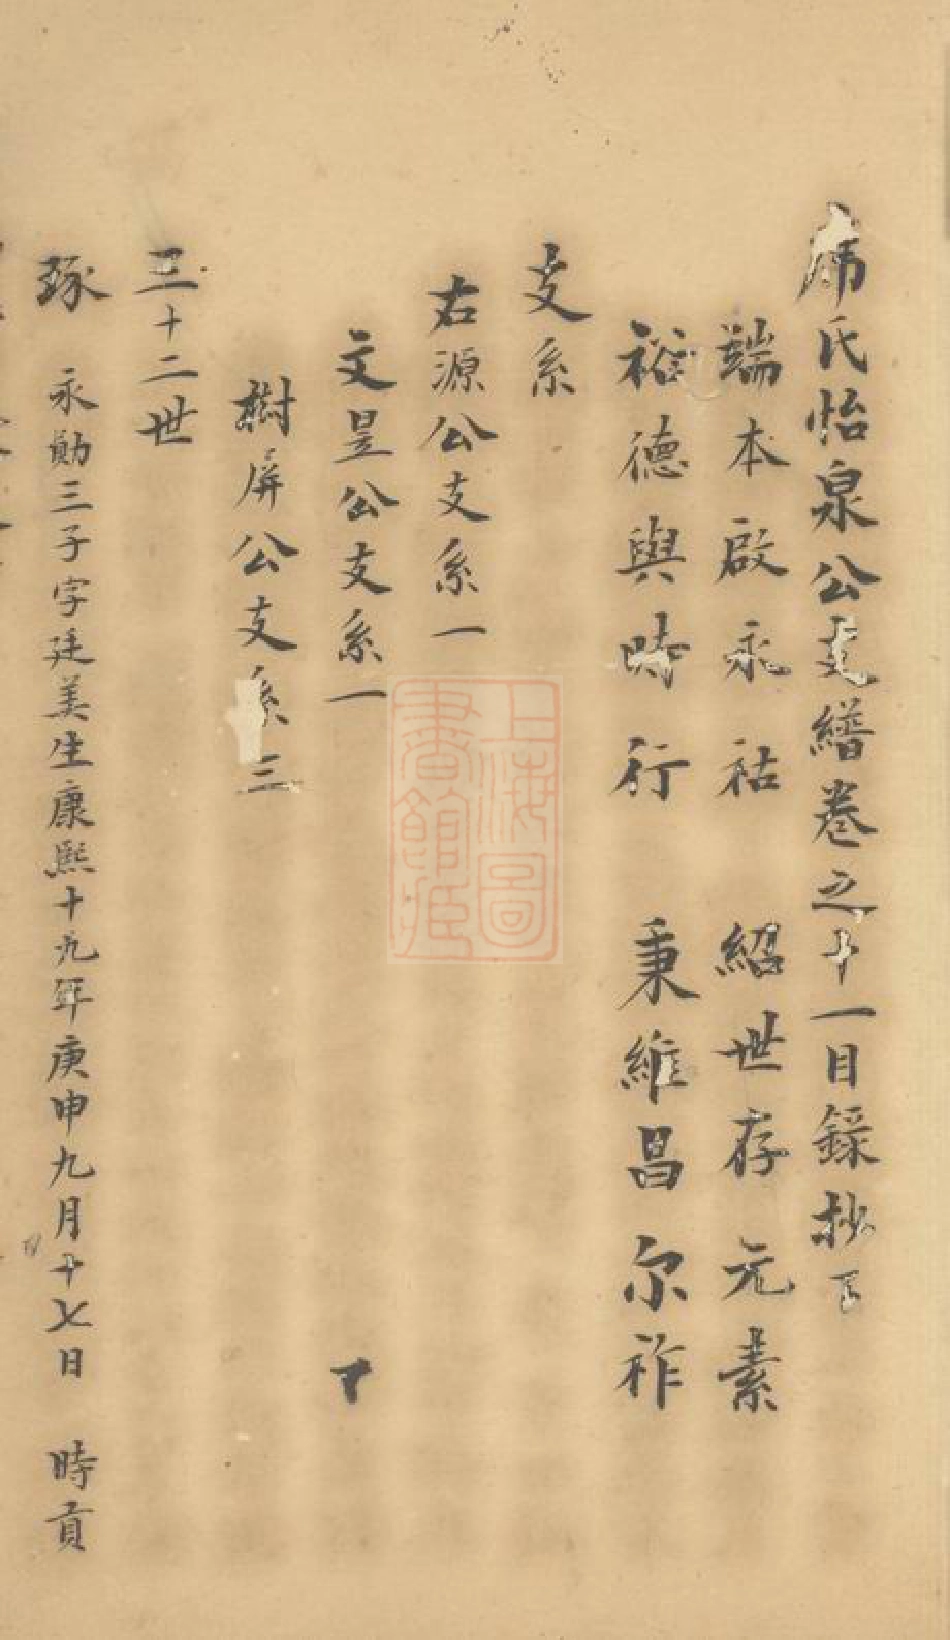 席氏怡泉公支繕卷之十一目錄抄下
端本啟永祜 紹世存元素
裕德與時行 秉維昌尔祚
支系
右源公支系一
文昱公支系一
樹屏公支系三
三十二世
琢 永勛三子字廷美生康熙十九年庚申九月十七日 時貢
上海圖書館藏